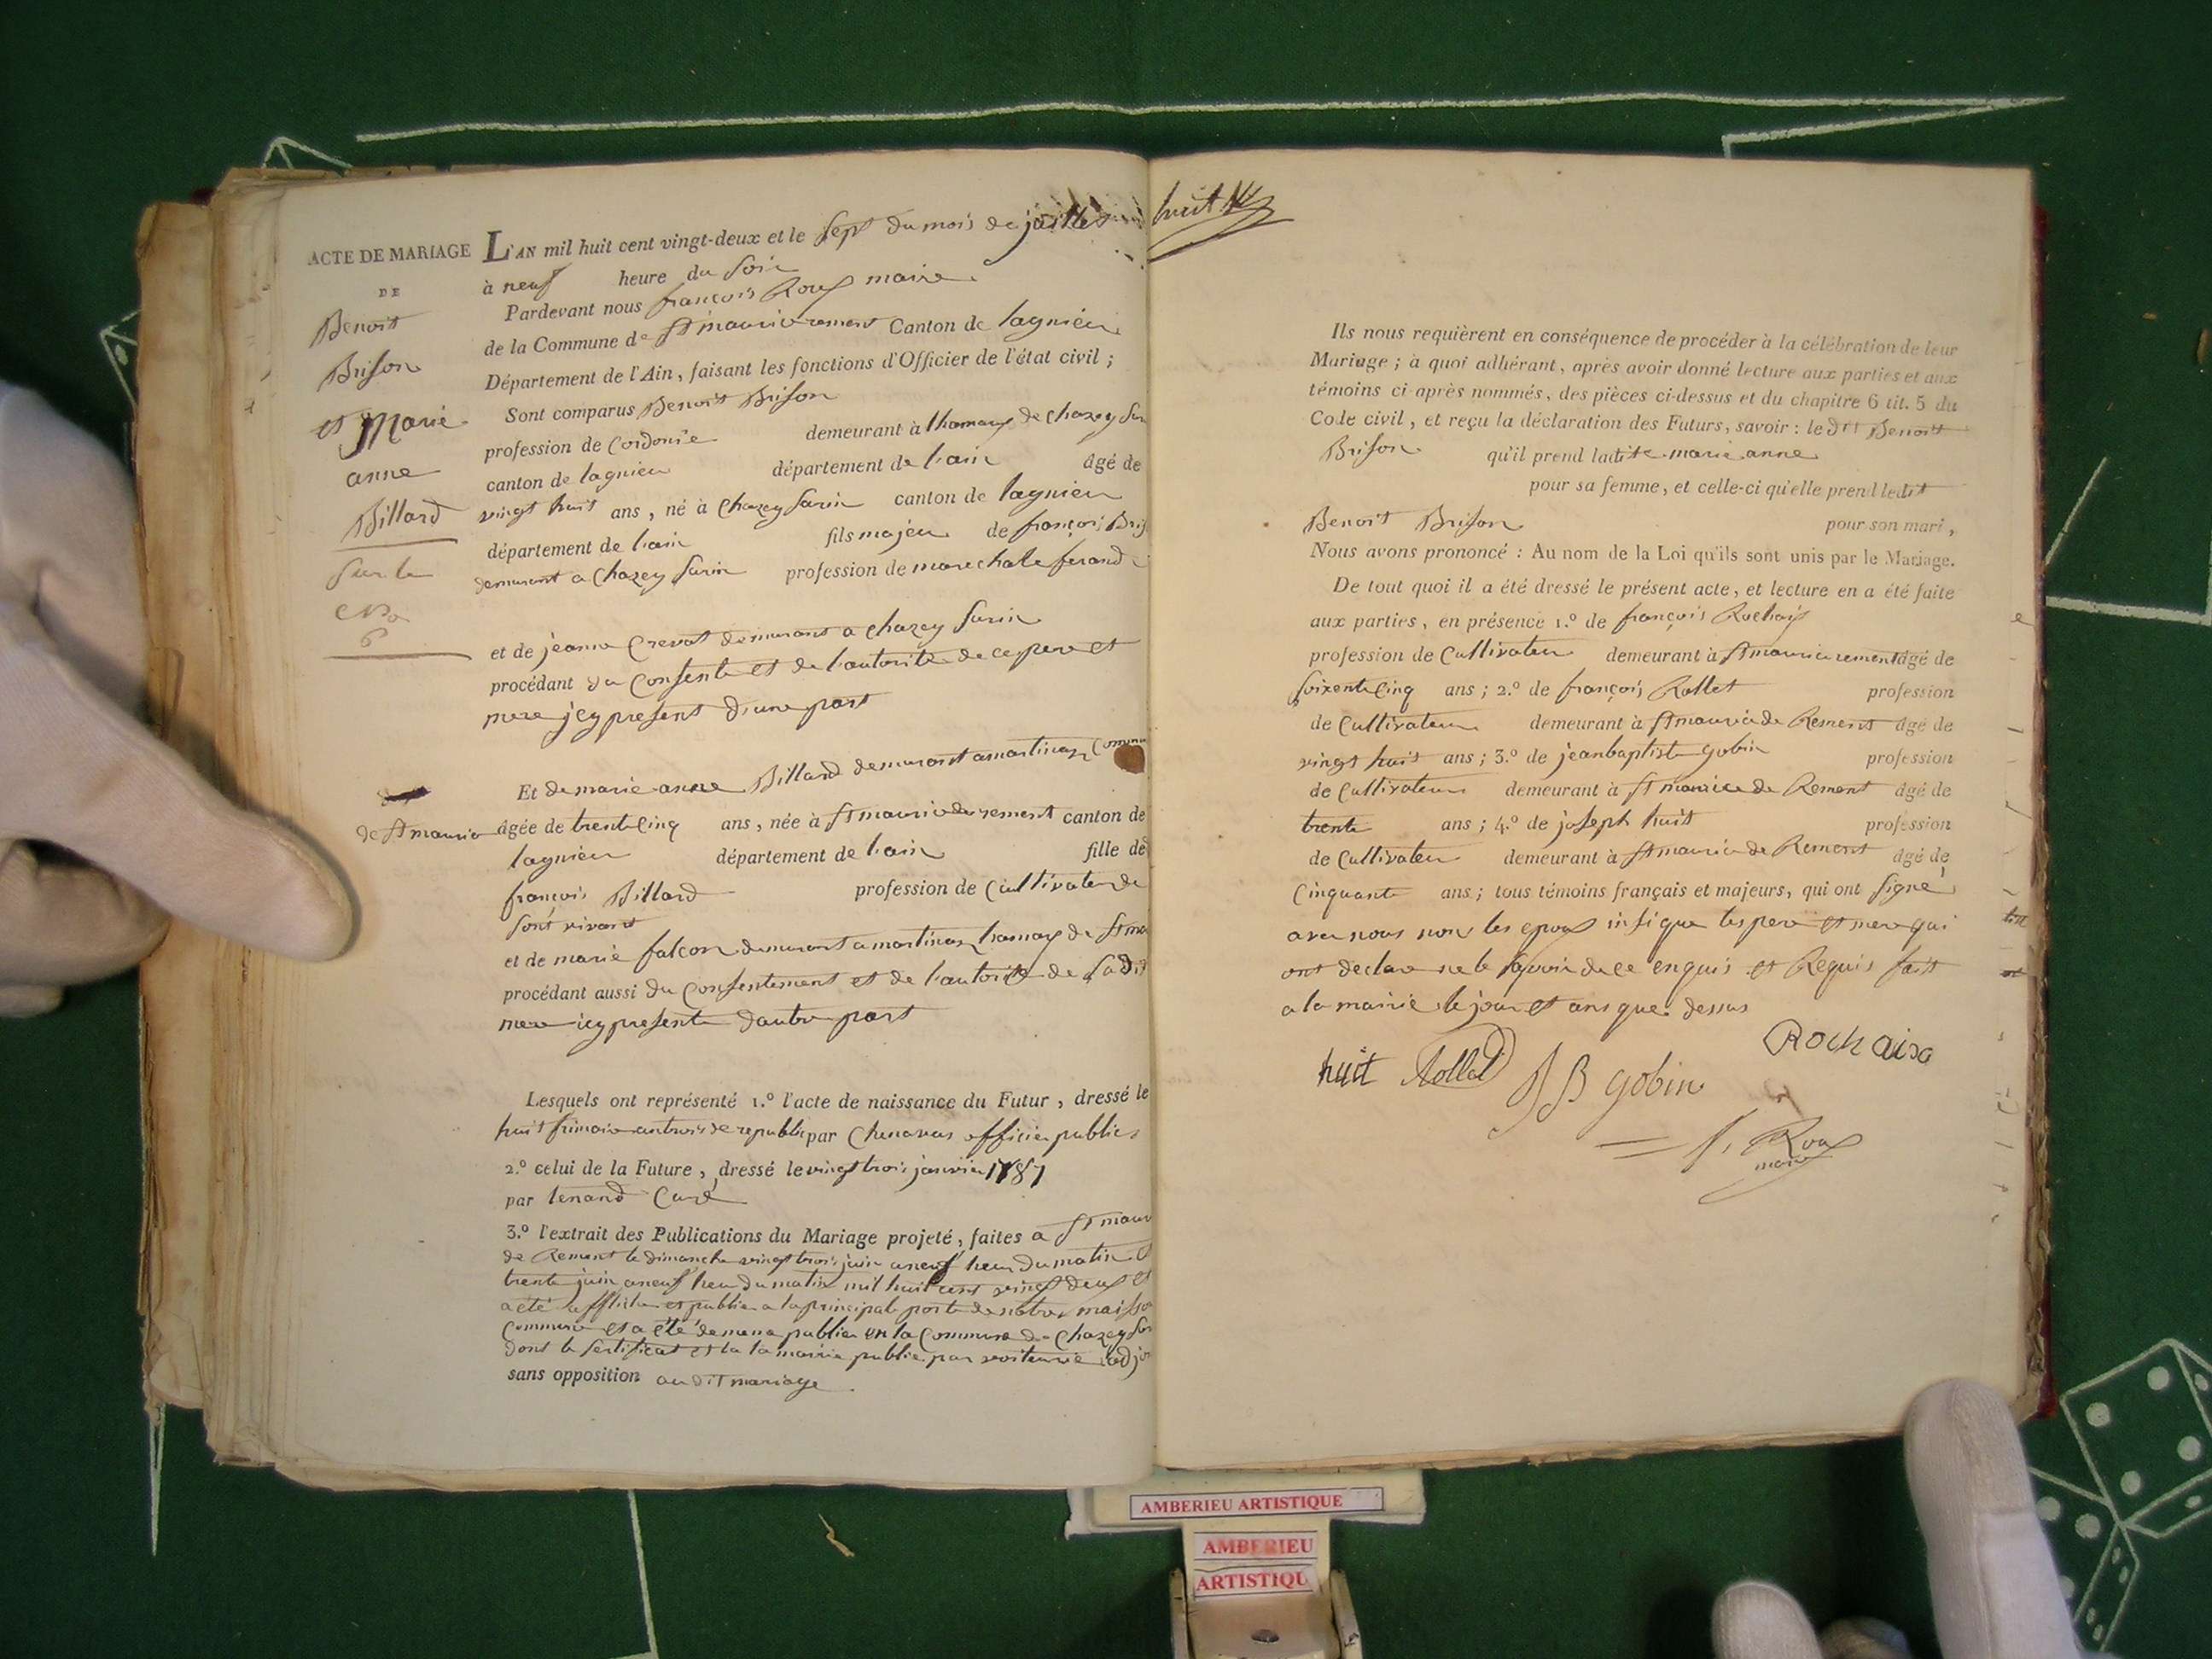 ACTE DE MARIAGE
DE
Benoit
Brison
et Marie
anne
Billard
sur le
No
6
L'AN mil huit cent vingt-deux et le sept du mois de juillet
à neuf heure du soir
Pardevant nous françois Roux maire
de la Commune de St mauricerement Canton de lagnieu
Département de l'Ain, faisant les fonctions d'Officier de l'état civil ;
Sont comparus Benoit Brison
profession de Cordonie demeurant à lhamaux de chazey sur
canton de lagnieu département de lain âgé de
vingt huit ans, né à Chazey surin canton de lagnieu
département de lain fils majeu de françois Bris
demurant a Chazey surin profession de marechale ferand
et de jeanne Crevat demurant a chazey surin
procédant du Consente et de lautorite de ce pere et
mere jcy present d'une part
Et de marie anne Billard demurant a martinaz Commu
de St maurice
âgée de trente Cinq ans, née à St maurice de rement canton de
lagnieu département de lain fille de
françois Billard profession de Cultivateu de
sont vivant
et de marie falcon demurant a martinaz hamaux de St ma
procédant aussi du Consentement et de lautorite de sa dit
mere icy presente dautre part
Lesquels ont représenté 1.º l'acte de naissance du Futur, dressé le
huit frimaire an trois de republi par Chenavas officie publics
2.º celui de la Future, dressé le vingt trois janvier 1787
par tenand Curé
3.º l'extrait des Publications du Mariage projeté, faites a St maur
de Rement le dimanche vingt trois juin a neuf heur du matin et
trente juin a neuf heu du matin mil huit cent vingt deux et
a été afficher et publier a la principale porte de notre maisson
Commune et a été de mene publier en la Commune de Chazey sur
dont le sertificat et la la mairie publie par voiturie adjo
sans opposition au dit mariage
huit
Ils nous requièrent en conséquence de procéder à la célébration de leur
Mariage ; à quoi adhérant, après avoir donné lecture aux parties et aux
témoins ci-après nommés, des pièces ci-dessus et du chapitre 6 tit. 5 du
Code civil, et reçu la déclaration des Futurs, savoir : le dit Benoit
Brison qu'il prend ladite marie anne
pour sa femme, et celle-ci qu'elle prend ledit
Benoit Brison pour son mari,
Nous avons prononcé : Au nom de la Loi qu'ils sont unis par le Mariage.
De tout quoi il a été dressé le présent acte, et lecture en a été faite
aux parties, en présence 1.º de françois Rochaix
profession de Cultivateu demeurant à St mauricerement âgé de
soixente Cinq ans ; 2.º de françois Rollet profession
de Cultivateur demeurant à St maurice de Rement âgé de
vingt huit ans ; 3.º de jean baptiste gobin profession
de Cultivateur demeurant à St maurice de Rement âgé de
trente ans ; 4.º de joseph huit profession
de Cultivateu demeurant à St maurice de Rement âgé de
Cinquante ans ; tous témoins français et majeurs, qui ont signé
avec nous non les epoux insi que les pere et mere qui
ont declare ne le savoir de ce enquis et Requis fait
a la mairie le jour et ans que dessus
Rochaix
huit Rollet JB gobin
f. Roux
maire
AMBERIEU ARTISTIQUE
AMBERIEU
ARTISTIQU